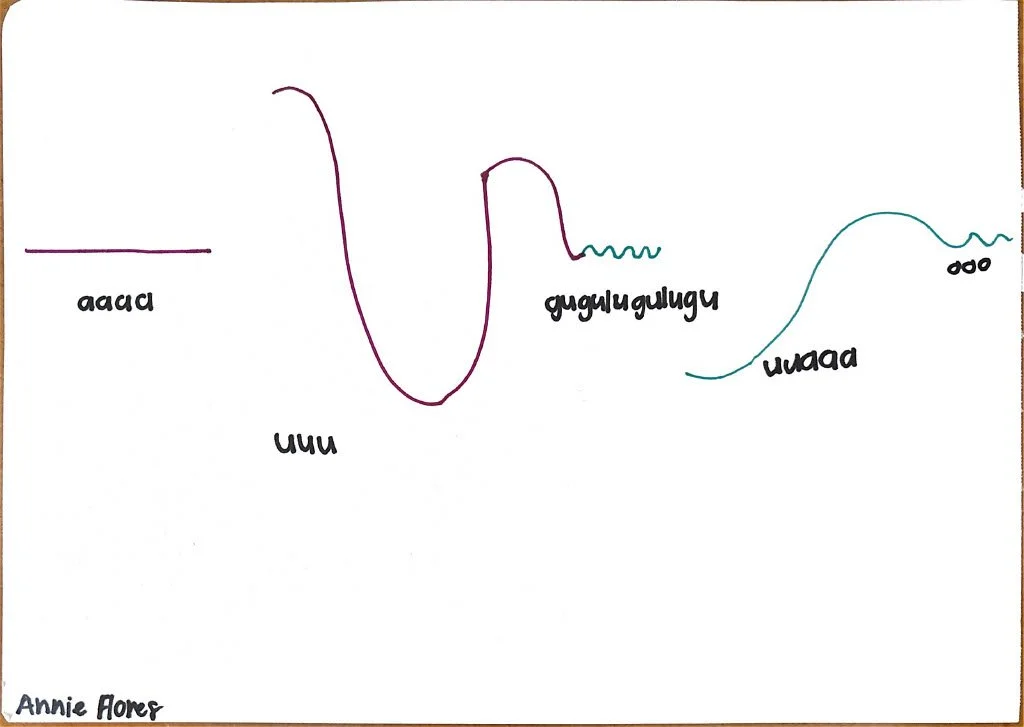 aaaa
uuu
gugulugulugu
uuaaa
ooo
Annie Flores